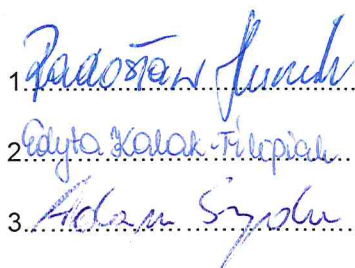 1. Radosław
2. Edyta Kałak-Filipiak
3. Adam